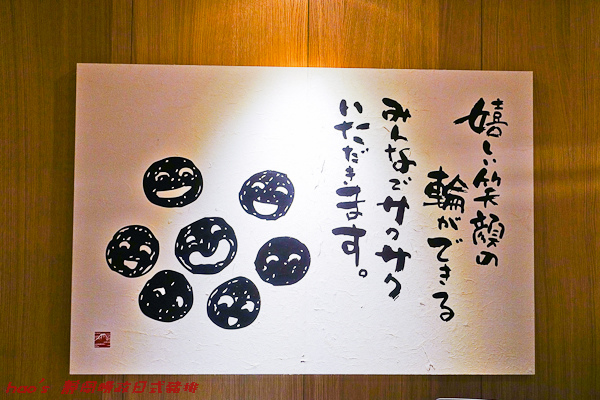 嬉しい笑顔の
輪ができる
みんなでサクサク
いただきます。